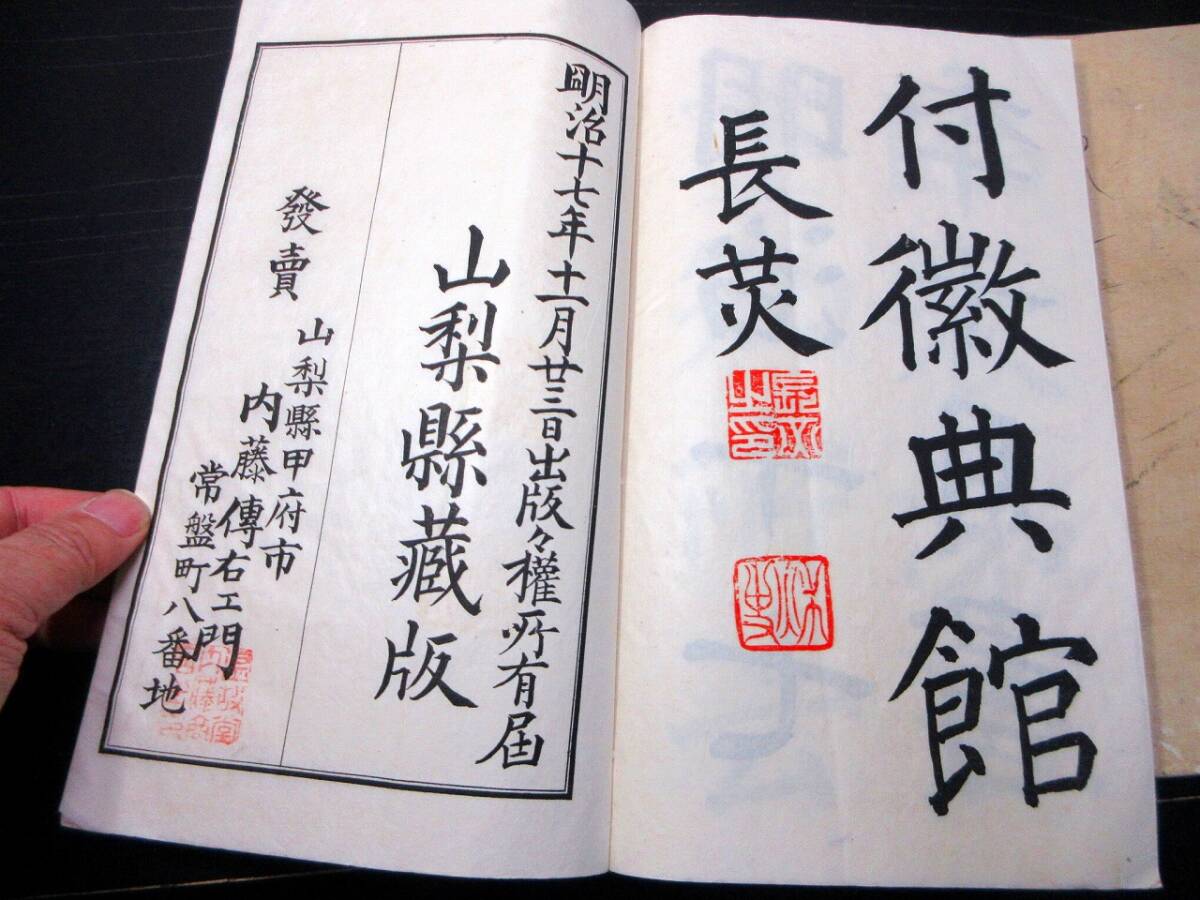 付徽典館
長茂
明治十七年十一月廿三日出版々權所有届
山梨縣藏版
發賣
山梨縣甲府市
常盤町八番地
内藤傳右エ門